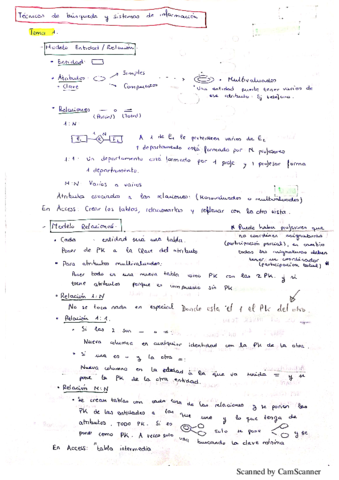 Técnicas de búsqueda y sistemas de información
Tema 1.
- Modelo Entidad / Relación
• Entidad:
• Atributos
Simples
Compuestos
• Clave
+ Multivaluados
"Una entidad puede tener varios de
ese atributo. Ej teléfono.
• Relaciones
(Parcial) (Total)
1:N
E1 1 N E2
A 1 de E1 le pertenecen varios de E2
1 departamento está formado por M profesores
1:1 Un departamento está formado por 1 jefe y 1 profesor forma
1 departamento.
M:N Varios a varios
Atributos asociados a las relaciones: (Monovaluados o multivaluados)
En Access: Crear las tablas, relacionarlas y rellenar con la otra vista.
- Modelo Relacional.
* Puede haber profesores que
no coordinen asignaturas
(participación parcial), en cambio
todas las asignaturas deben
tener un coordinador
(participación total) *
• Cada entidad será una tabla
Poner de PK a la clave del atributo
• Para atributos multivaluados:
Hacer todo es una nueva tabla como PK con las 2 PK, y si
tiene atributos porque es compuesto sin PK
• Relación 1:N
No se hace nada en especial Donde este el 1 el PK del otro.
• Relación 1:1.
• Si las 2 son - o =:
Nueva columna en cualquier identidad con la PK de la otra
• Si una es - y la otra =:
Nueva columna en la entidad si la que va unida = y se
pone la PK de la otra entidad.
• Relación M:N
• Se crean tablas con cada una de las relaciones y se ponen las
PK de las entidades a las que une y lo que tenga de
atributos, TODO PK. Si es solo se pone
como PK. A veces solo vale buscando la clave mínima
En Access: "tabla intermedia
Scanned by CamScanner